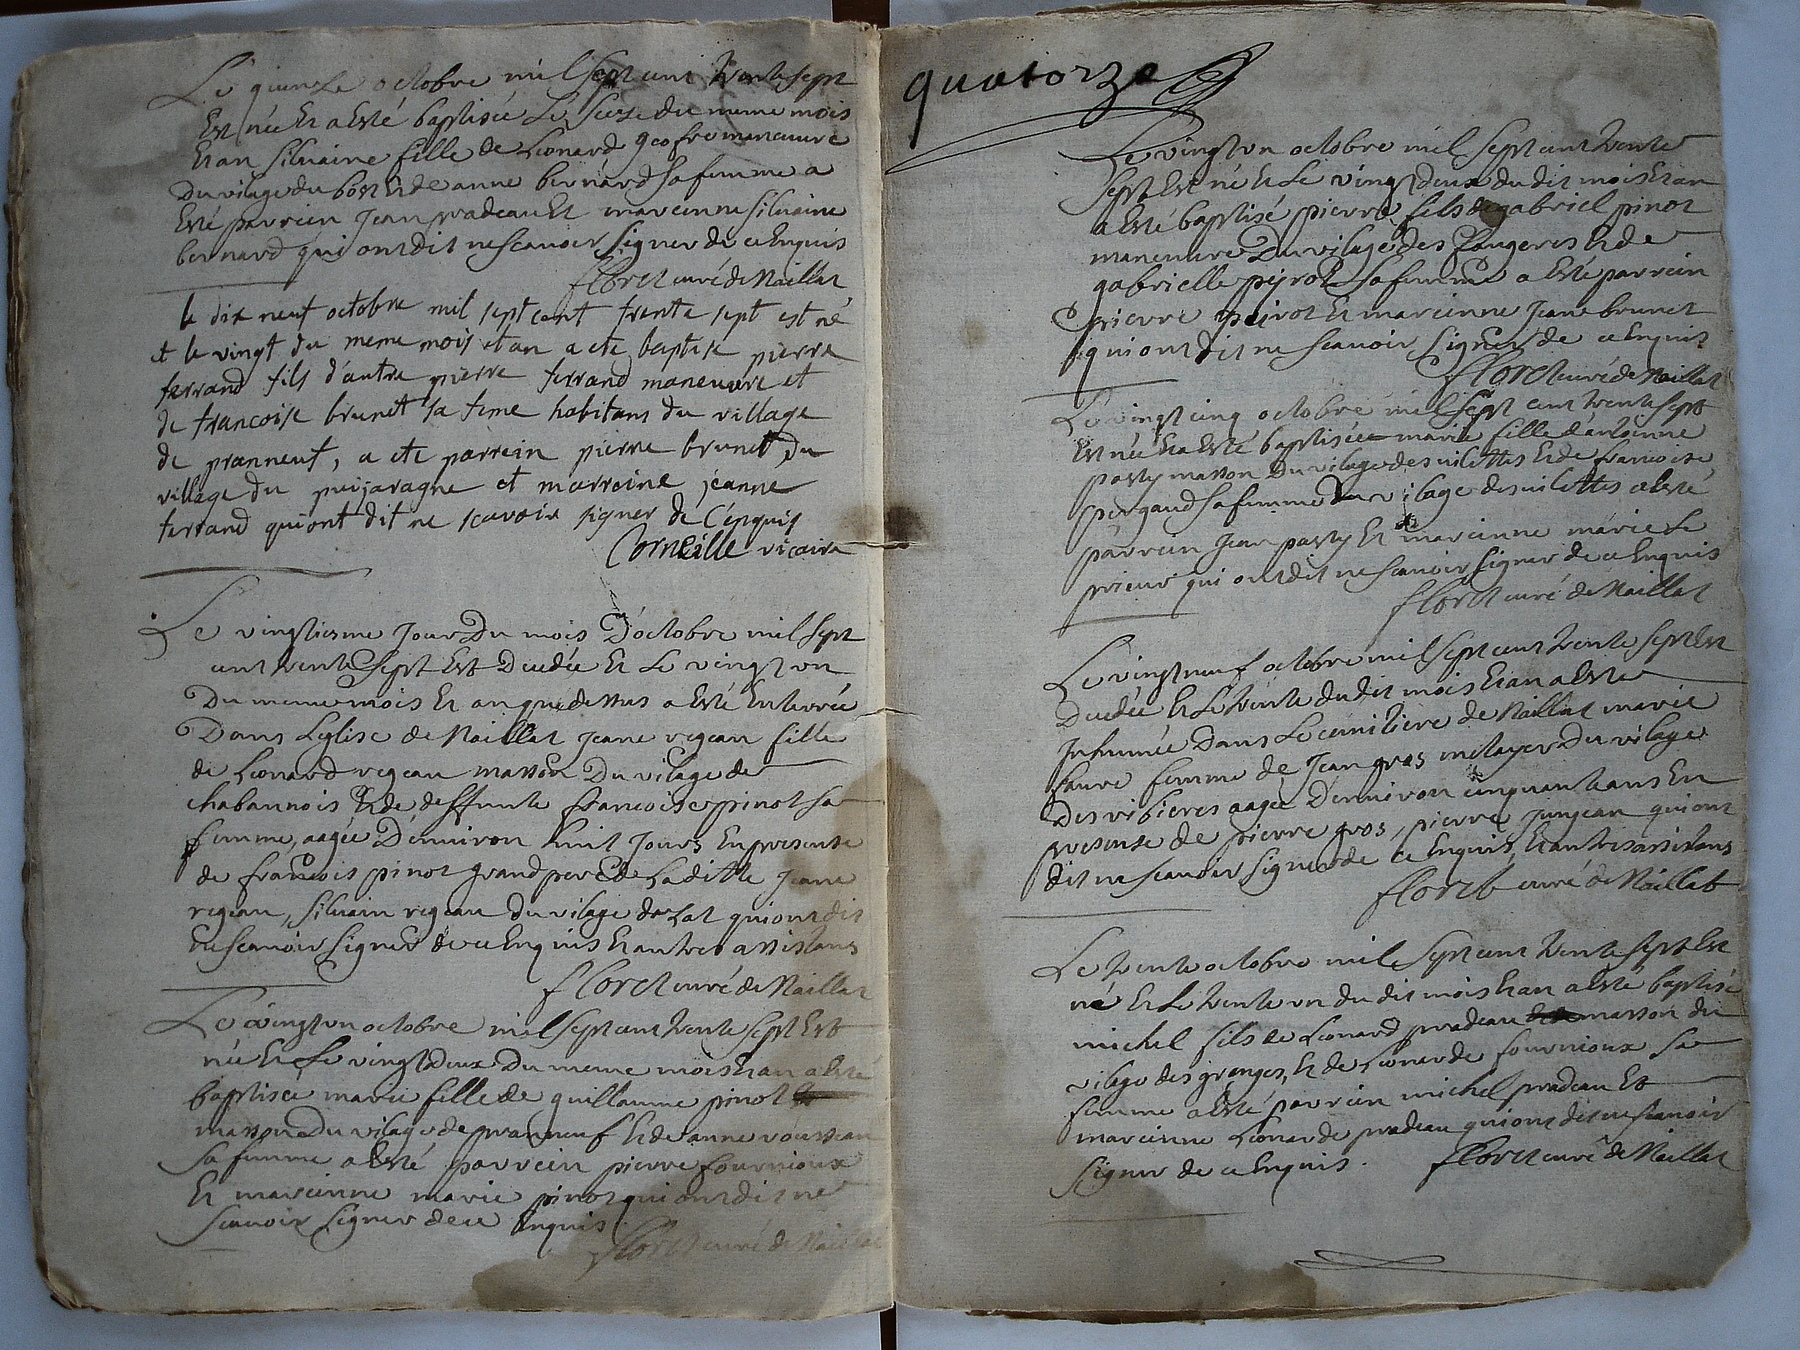 Le quinze octobre mil sept cent trente sept
Est née Et a Esté baptisée Le seize du meme mois
Et an silvaine fille de Leonard geofre maneuvre
Du vilage du bost Et de anne bernard sa femme a
Esté parrein Jean pradeau Et mareinne silvaine
bernard qui ont dit ne scavoir signer de ce Enquis
floret curé de Naillat
le dix neuf octobre mil sept cent trente sept est né
et le vingt du meme mois et an a ete baptise pierre
ferrand fils d'autre pierre ferrand maneuvre et
de francoise brunet sa feme habitans du village
de pranneuf, a ete parrein pierre brunet du
village du puijaragne et marraine jeanne
ferrand qui ont dit ne scavoir signer de c'enquis
Corneille vicaire
Le vingtiesme Jour Du mois D'octobre mil sept
cent trente sept Est Decedée Et Le vingt un
Du meme mois Et an que dessus a Esté Enterrée
Dans Leglise de Naillat Jeane rejeau fille
de Leonard rejeau masson Du vilage de
chabannois Et de deffunte francoise pinot sa
femme, aagée D'environ huit Jours En presence
de francois pinot grand pere de La ditte Jeane
rejeau, silvain rejeau du vilage de Lat qui ont dit
ne scavoir signer de ce Enquis Et autres assistans
floret curé de Naillat
Le vingt un octobre mil sept cent trente sept Est
née Et Le vingt Deux Du meme mois Et an a Esté
baptisée marie fille de guillaume pinot
masson Du vilage de pranneuf Et de anne rousseau
sa femme a Esté parrein pierre fournioux
Et mareinne marie pinot qui ont dit ne
scavoir signer de ce Enquis
floret curé de Naillat
quatorze
Le vingt un octobre mil sept cent trente
sept Est né Et Le vingt deux du dit mois Et an
a Esté baptisé pierre fils de gabriel pinot
maneuvre Du vilage des faugeres Et de
gabrielle peyrot sa femme a Esté parrein
pierre peirot Et mareinne Jeane brunet
qui ont dit ne scavoir signer de ce Enquis
floret curé de Naillat
Le vingt cinq octobre mil sept cent trente sept
Est née Et a Esté baptisée marie fille d'antoinne
pasty masson Du vilage des vilettes Et de francoise
pergaud sa femme Du vilage des vilettes a Esté
parrein Jean pasty Et mareinne marie Le
prieur qui ont dit ne scavoir signer de ce Enquis
floret curé de Naillat
Le vingt neuf octobre mil sept cent trente sept Est
Decedée Et Le trente du dit mois Et an a Esté
Inhumée Dans Le cemitiere de Naillat marie
faure femme de Jean gros metayer Du vilage
Des ribieres aagée D'environ cinquante ans En
presence de pierre gros, pierre junjean qui ont
dit ne scavoir signer de ce Enquis Et autres assistans
floret curé de Naillat
Le trente octobre mil sept cent trente sept Est
né Et Le trente un du dit mois Et an a Esté baptisé
michel fils de Leonard pradeau masson du
vilage des granges, Et de Leonarde fournioux sa
femme a Esté parrein michel pradeau Et
mareinne Leonarde pradeau qui ont dit ne scavoir
signer de ce Enquis. floret curé de Naillat